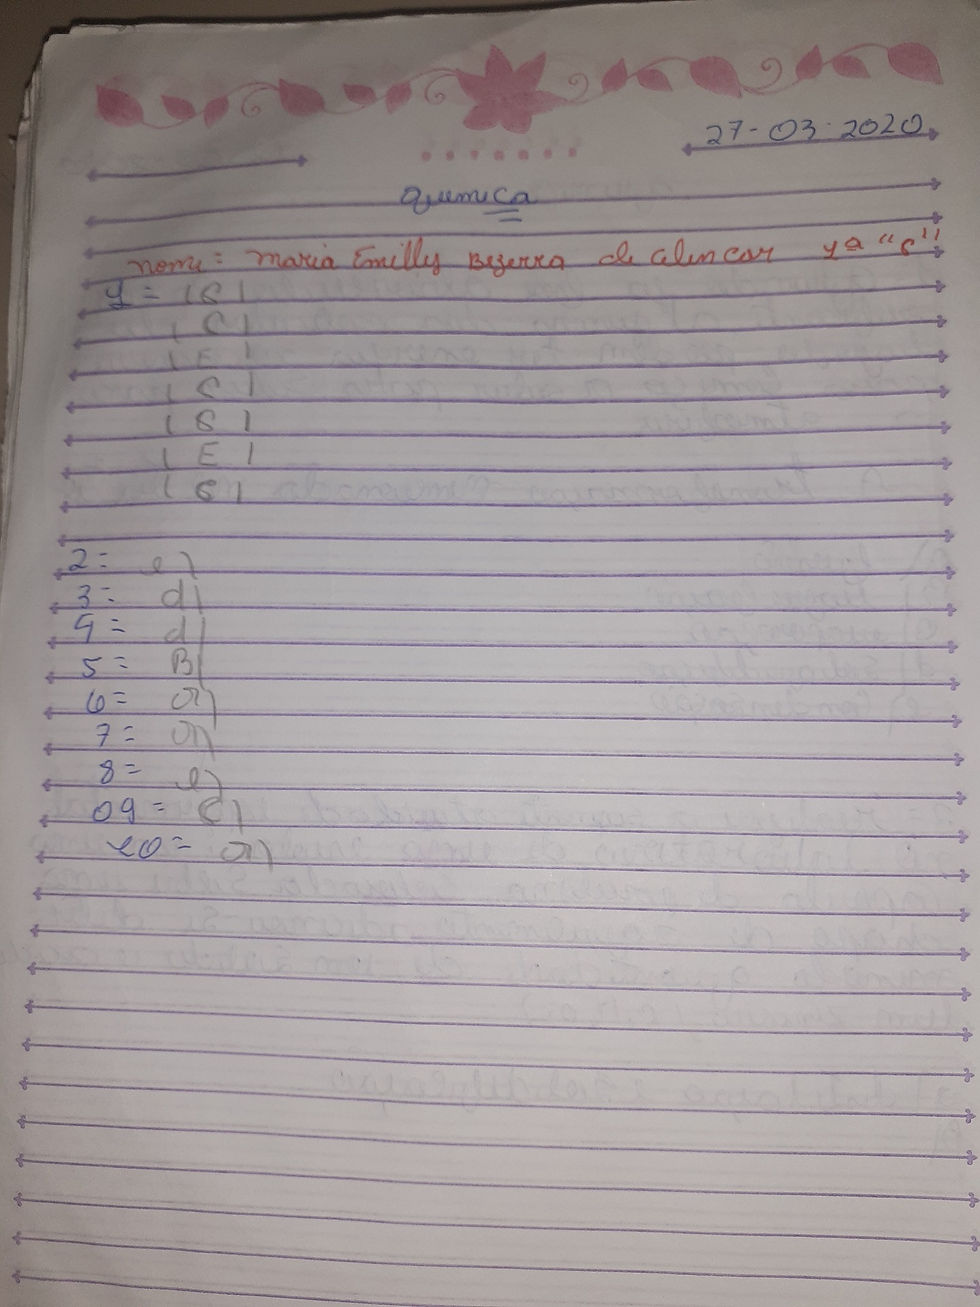 27-03-2020
Química
nome: Maria Emilly Bezerra de Alencar 1ª "C"
1 = ( C )
( C )
( E )
( C )
( C )
( E )
( C )
2= e)
3= d)
4= d)
5= B)
6= a)
7= a)
8= e)
09= C)
10= a)